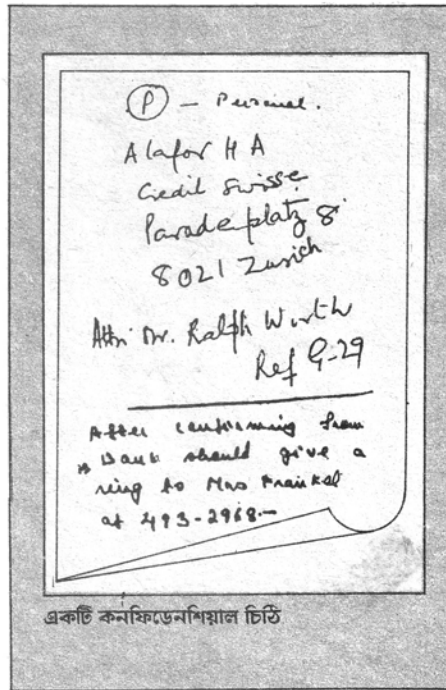 (P) - Personal.
Alafor H A
Credit Swisse
Paradeplatz 8
8021 Zurich
Attn Mr. Ralph Wurth
Ref G-29
After confirming from
Bank should give a
ring to Mrs Frankel
at 493-2968.-
একটি কনফিডেনশিয়াল চিঠি